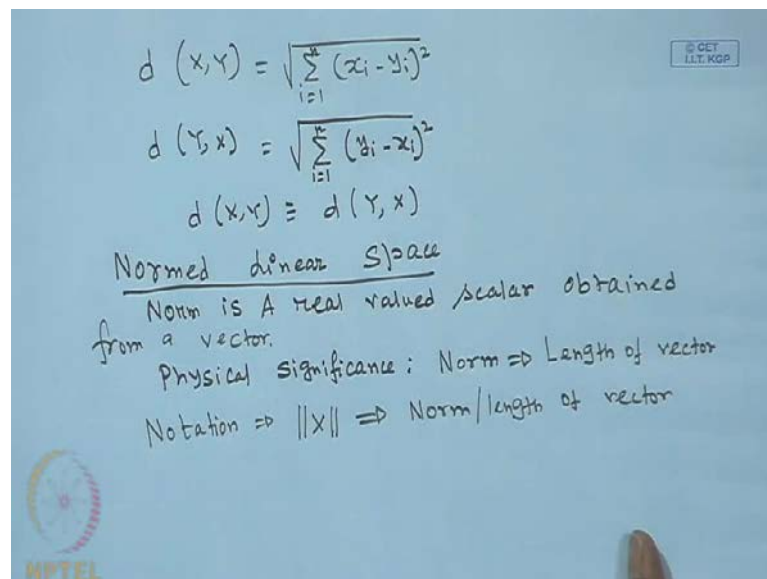 d (X,Y) = √ n Σ i=1 (xi - yi)²
© CET
I.I.T. KGP
d (Y,X) = √ n Σ i=1 (yi - xi)²
d (X,Y) ≡ d (Y, X)
Normed Linear Space
Norm is A real valued scalar obtained
from a vector.
Physical significance : Norm ⇒ Length of vector
Notation ⇒ ||X|| ⇒ Norm/length of vector
NPTEL